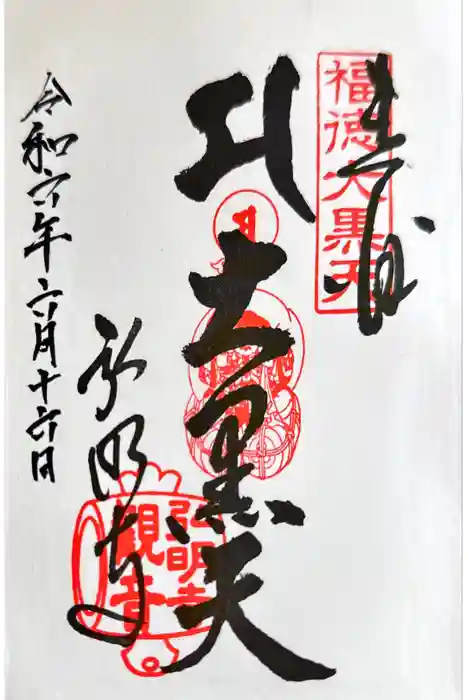 奉拝
福徳大黒天
大黒天
弘明寺
弘明寺
観音
令和六年六月十六日